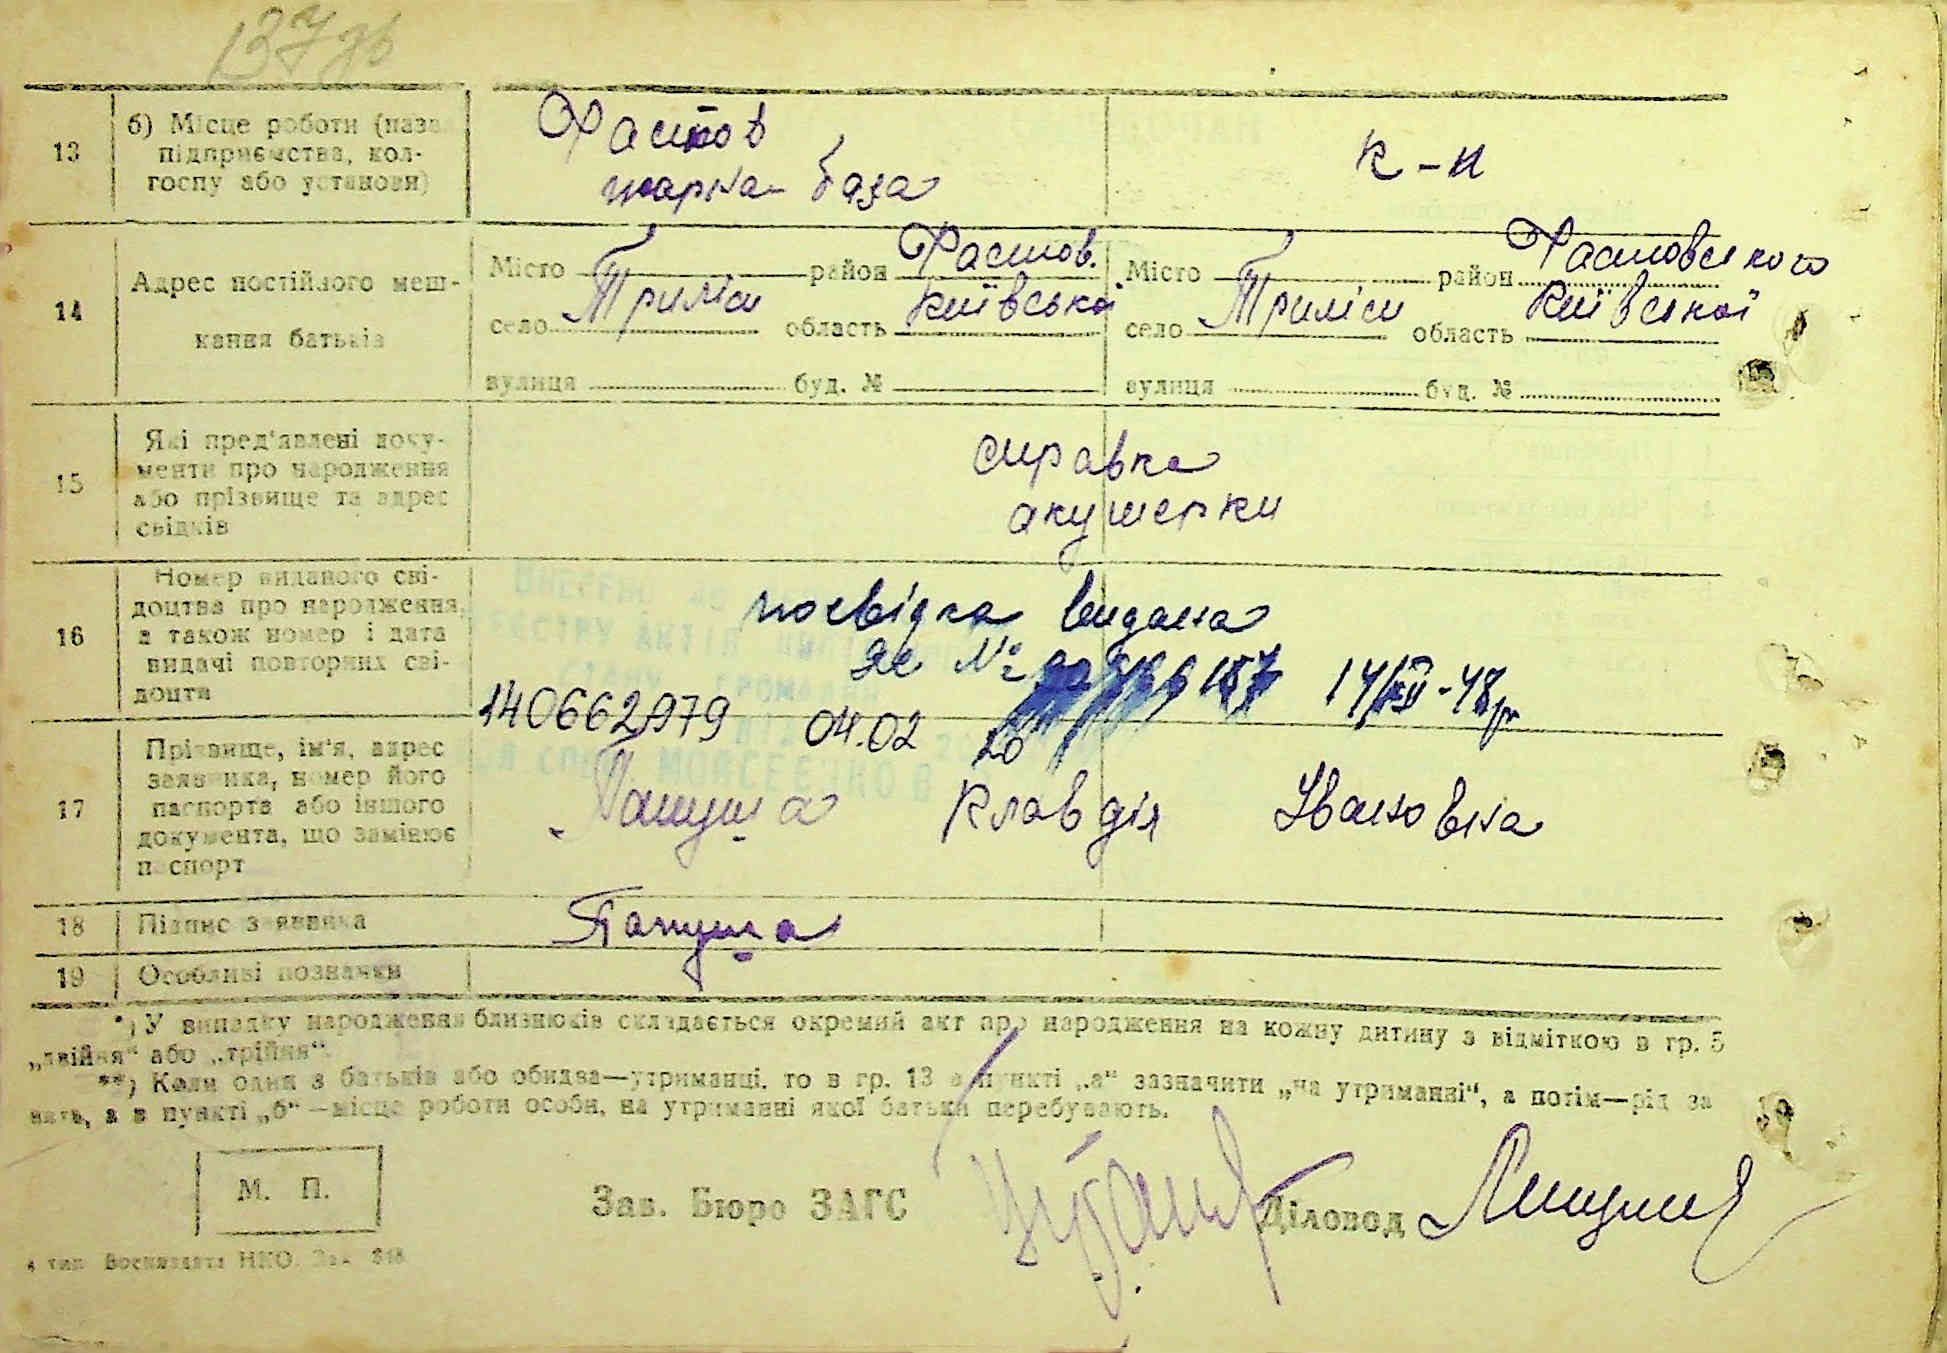 137 зв
13
б) Місце роботи (назва
підприємства, кол-
госпу або установи)
Фастов
база
к-п
14
Адрес постійного меш-
кання батьків
Місто район Фастов.
село Триліси область Київської
вулиця буд. №
Місто район Фастовського
село Триліси область Київської
вулиця буд. №
15
Які пред'явлені доку-
менти про народження
або прізвище та адрес
свідків
справка
акушерки
16
Номер виданого сві-
доцтва про народження,
а також номер і дата
видачі повторних сві-
доцтв
посвідка видана
№ 14/XII-48р
140662979 04.02 20
17
Прізвище, ім'я, адрес
заявника, номер його
паспорта або іншого
документа, що замінює
паспорт
Папуша Клавдія Івановна
18
Підпис заявника
Папуша
19
Особливі позначки
*) У випадку народження близнюків складається окремий акт про народження на кожну дитину з відміткою в гр. 5
„двійня“ або „трійня“.
**) Коли один з батьків або обидва—утриманці, то в гр. 13 в пункті „а“ зазначити „на утриманні“, а потім—рід за
нять, а в пункті „б“—місце роботи особи, на утриманні якої батьки перебувають.
М. П.
Зав. Бюро ЗАГС
Діловод
4 тип. Воениздата НКО. Зак. 318